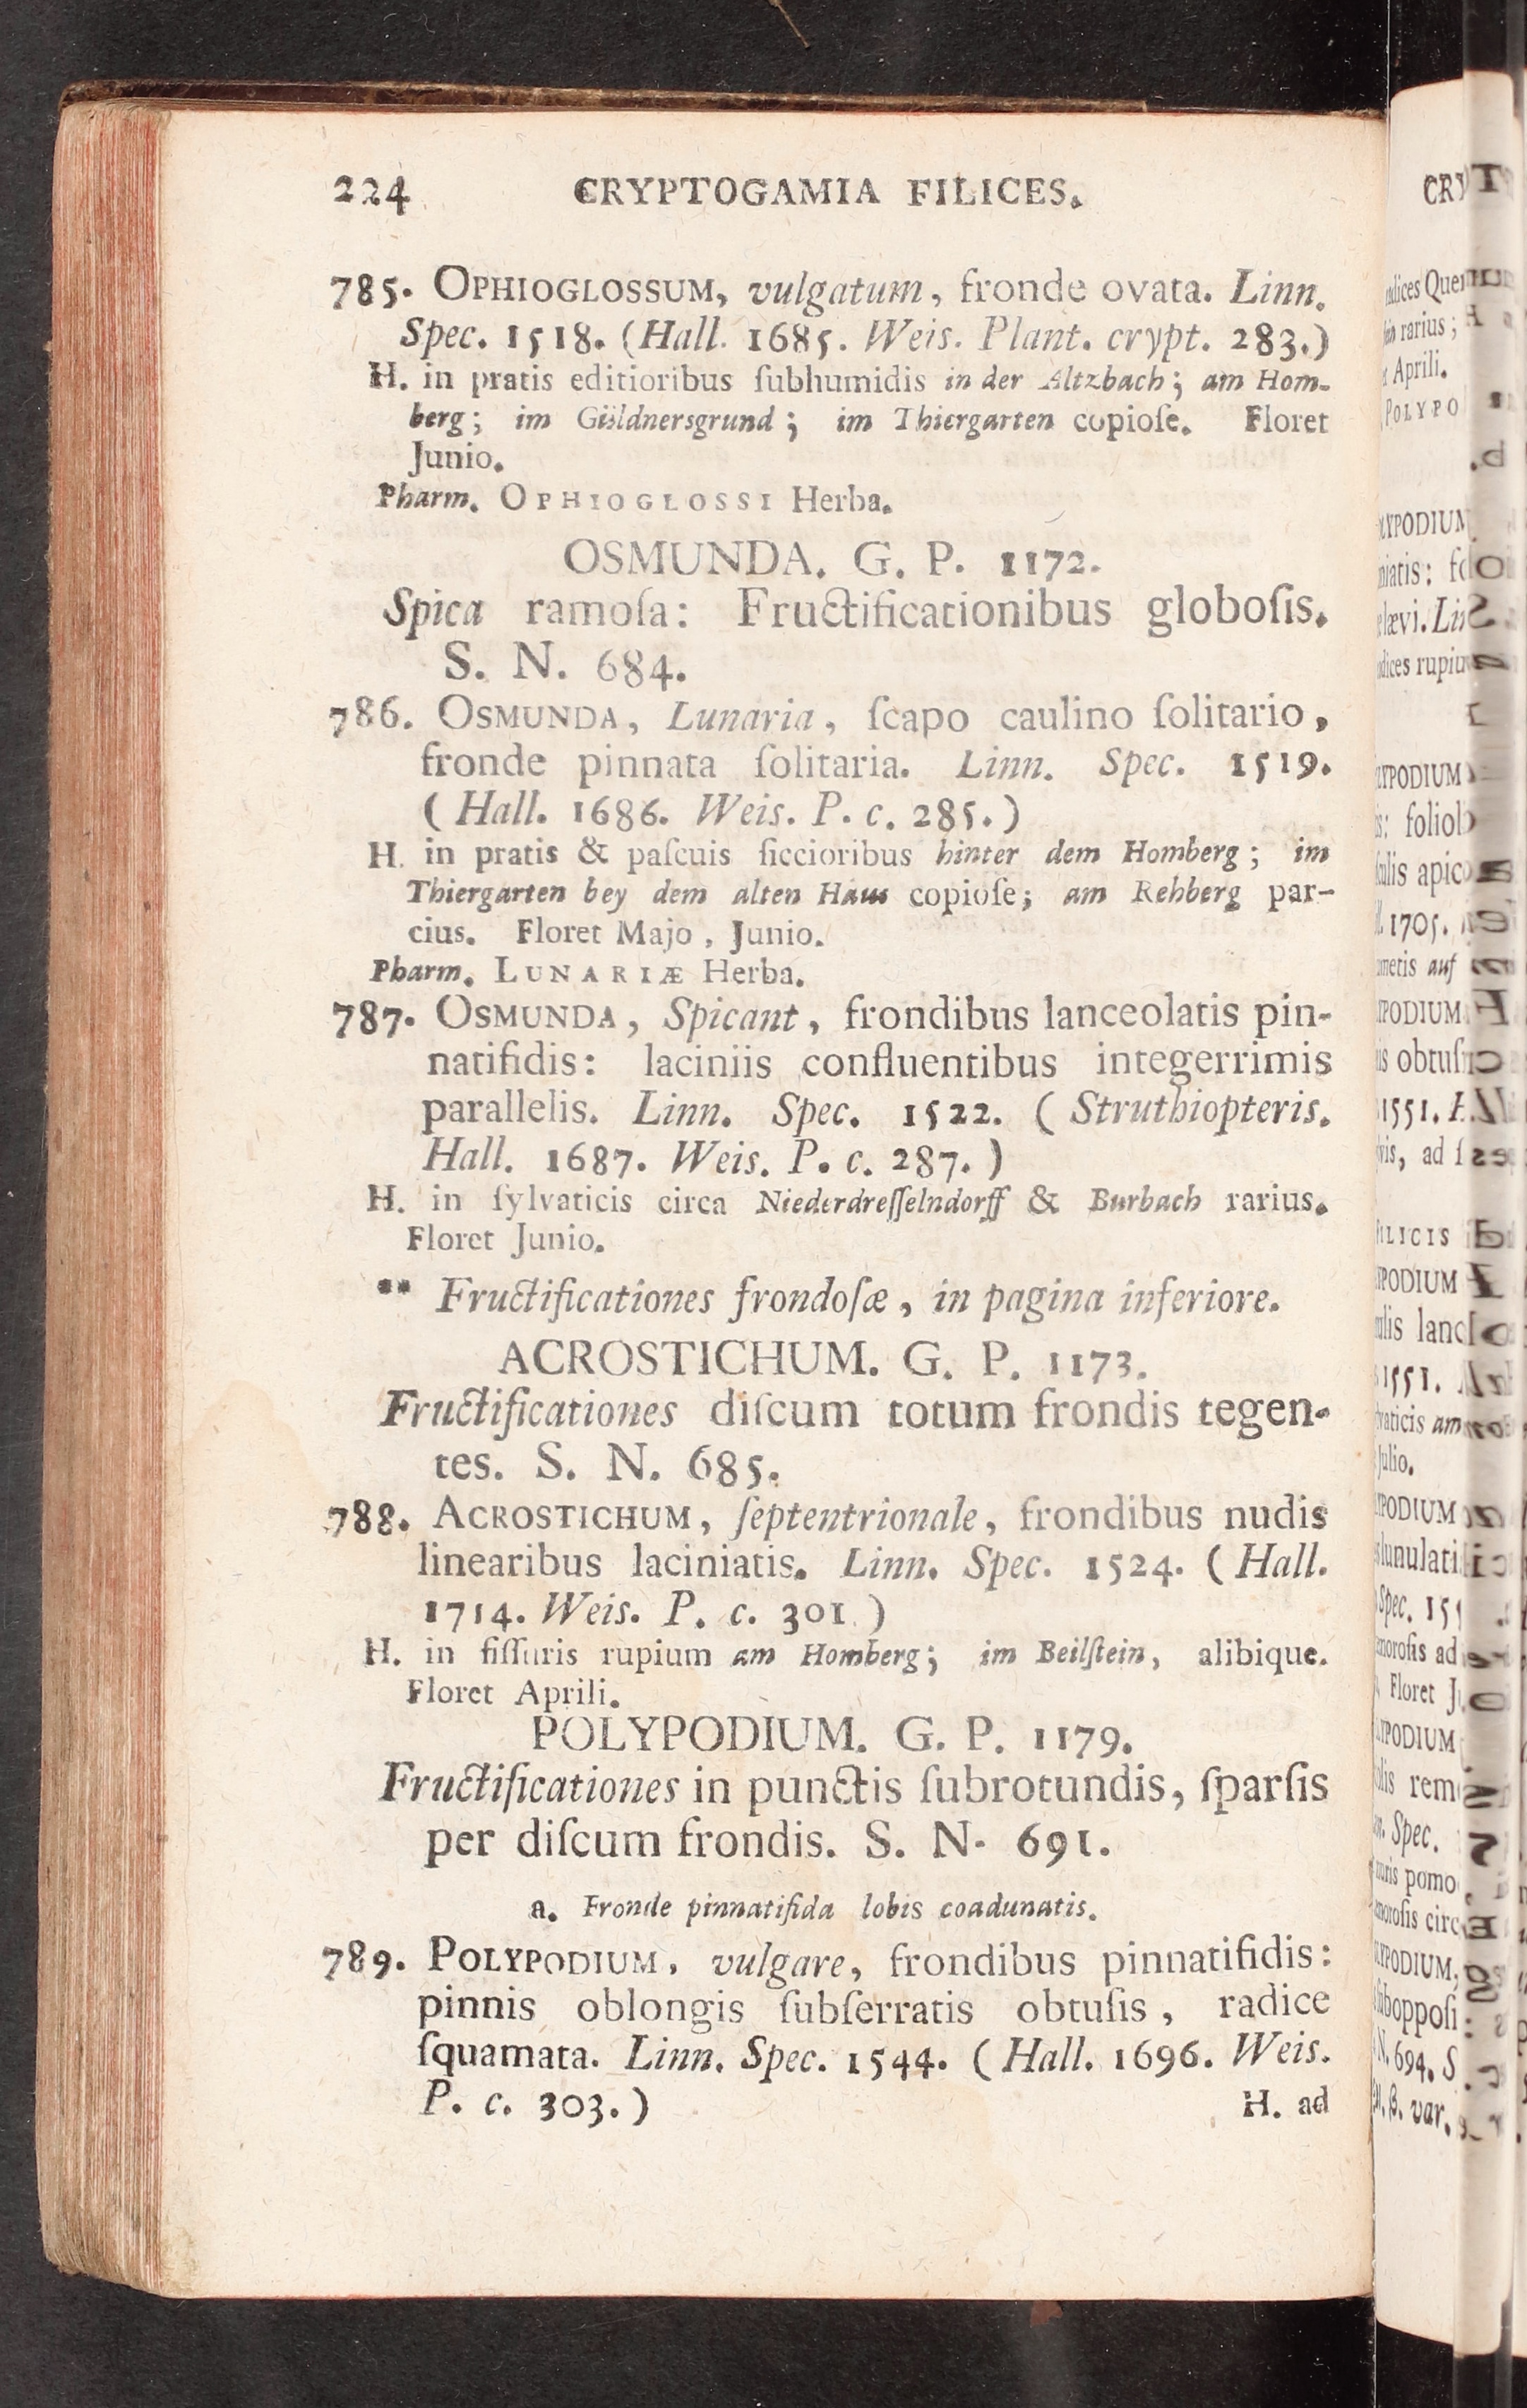 224 CRYPTOGAMIA FILICES.
785. OPHIOGLOSSUM, vulgatum, fronde ovata. Linn.
Spec. 1518. (Hall. 1685. Weis. Plant. crypt. 283.)
H. in pratis editioribus ſubhumidis in der Altzbach; am Hom-
berg; im Güldnersgrund; im Thiergarten copioſe. Floret
Junio.
Pharm. OPHIOGLOSSI Herba.
OSMUNDA. G. P. 1172.
Spica ramoſa: Fructificationibus globoſis.
S. N. 684.
786. OSMUNDA, Lunaria, ſcapo caulino ſolitario,
fronde pinnata ſolitaria. Linn. Spec. 1519.
(Hall. 1686. Weis. P. c. 285.)
H. in pratis & paſcuis ſiccioribus hinter dem Homberg; im
Thiergarten bey dem alten Haus copioſe; am Rehberg par-
cius. Floret Majo, Junio.
Pharm. LUNARIÆ Herba.
787. OSMUNDA, Spicant, frondibus lanceolatis pin-
natifidis: laciniis confluentibus integerrimis
parallelis. Linn. Spec. 1522. (Struthiopteris.
Hall. 1687. Weis. P. c. 287.)
H. in ſylvaticis circa Niederdreſſelndorff & Burbach rarius.
Floret Junio.
** Fructificationes frondoſæ, in pagina inferiore.
ACROSTICHUM. G. P. 1173.
Fructificationes diſcum totum frondis tegen-
tes. S. N. 685.
788. ACROSTICHUM, ſeptentrionale, frondibus nudis
linearibus laciniatis. Linn. Spec. 1524. (Hall.
1714. Weis. P. c. 301.)
H. in fiſſuris rupium am Homberg; im Beilſtein, alibique.
Floret Aprili.
POLYPODIUM. G. P. 1179.
Fructificationes in punctis ſubrotundis, ſparſis
per diſcum frondis. S. N. 691.
a. Fronde pinnatifida lobis coadunatis.
789. POLYPODIUM, vulgare, frondibus pinnatifidis:
pinnis oblongis ſubſerratis obtuſis, radice
ſquamata. Linn. Spec. 1544. (Hall. 1696. Weis.
P. c. 303.) H. ad